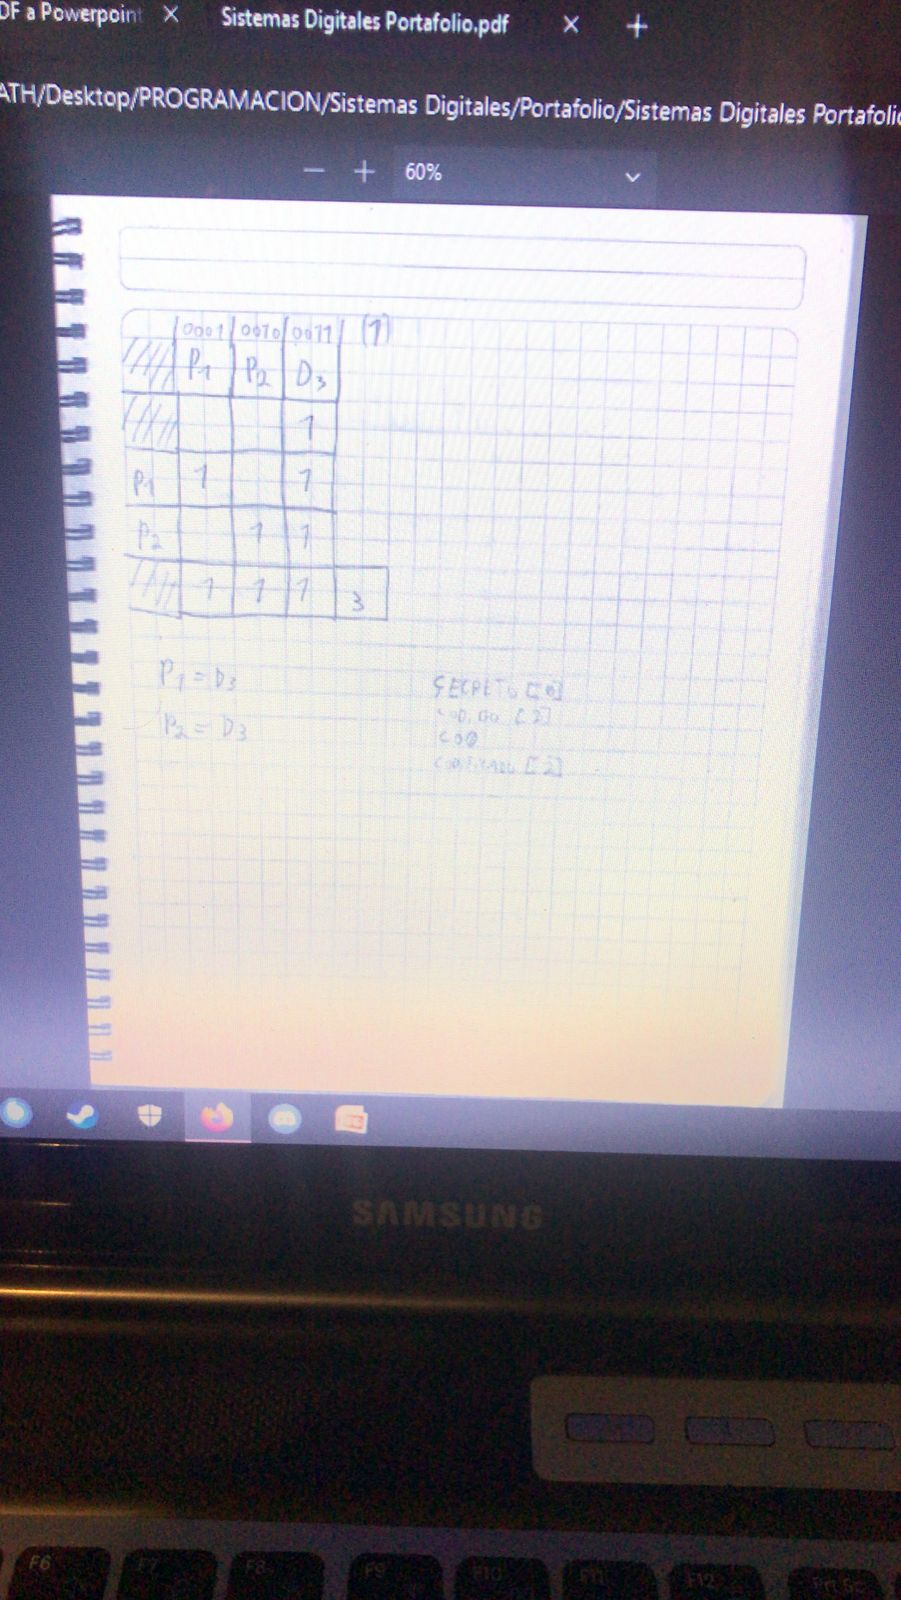 DF a Powerpoint Sistemas Digitales Portafolio.pdf
ATH/Desktop/PROGRAMACION/Sistemas Digitales/Portafolio/Sistemas Digitales Portafolio
60%
0001 0010 0011 (1)
P1 P2 D3
1
P1 1 1
P2 1 1
1 1 1 3
P1 = D3
P2 = D3
SECRETO [0]
[2]
COD
CODIFICADO [2]
SAMSUNG
F6 F7 F8 F9 F10 F11 F12 Prt Sc